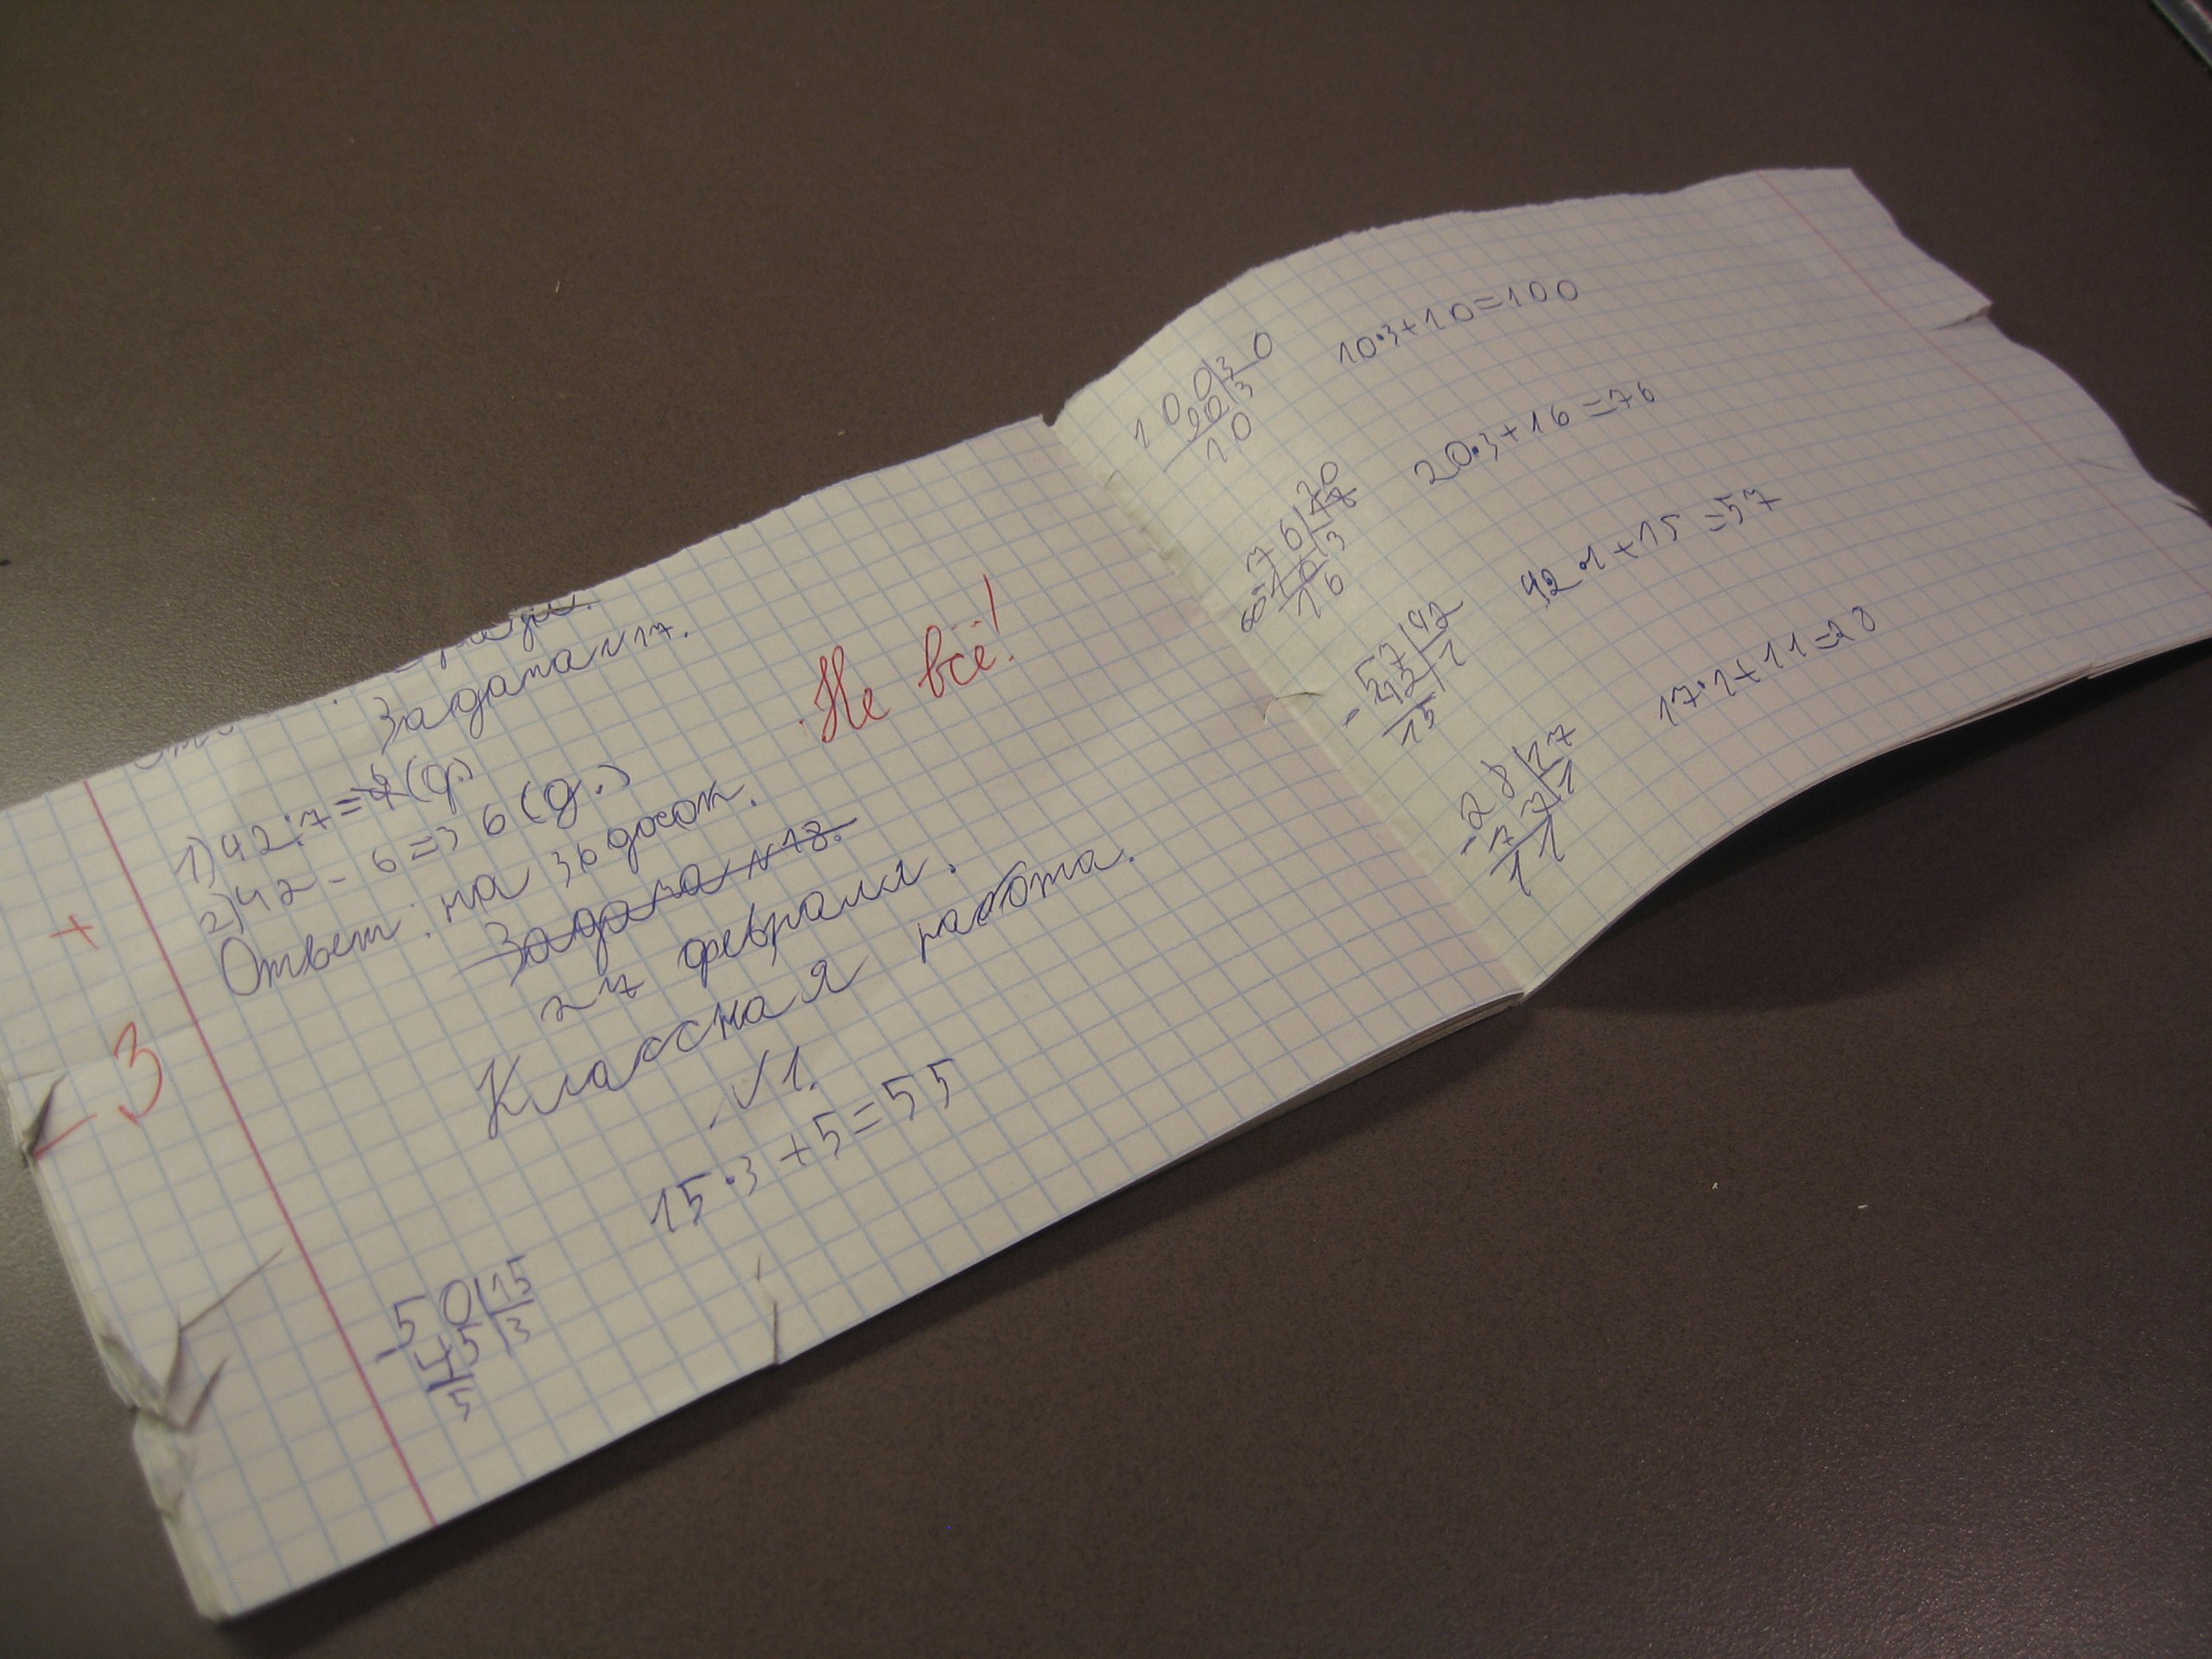 Задача N17.
1) 42:7=6(д.)
2) 42-6=36(д.)
Ответ: на 36 досок.
Не всё!
+
-3
Задача N18.
27 февраля.
Классная работа.
N1.
15·3+5=55
50|15
-45|3
5
100|30
90|3
10
10·3+10=100
76|20
60
16
20·3+16=76
57|42
-42|1
15
42·1+15=57
28|17
-17|1
11
17·1+11=28